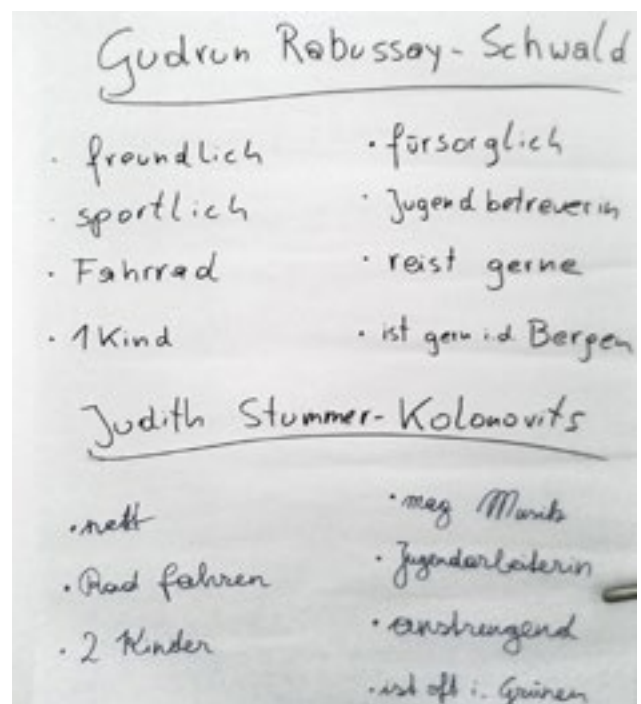 Gudrun Rabussay-Schwald
· freundlich
· sportlich
· Fahrrad
· 1 Kind
· fürsorglich
· Jugendbetreuerin
· reist gerne
· ist gern i.d. Bergen
Judith Stummer-Kolonovits
· nett
· Rad fahren
· 2 Kinder
· mag Musik
· Jugendarbeiterin
· anstrengend
· ist oft i. Grünen